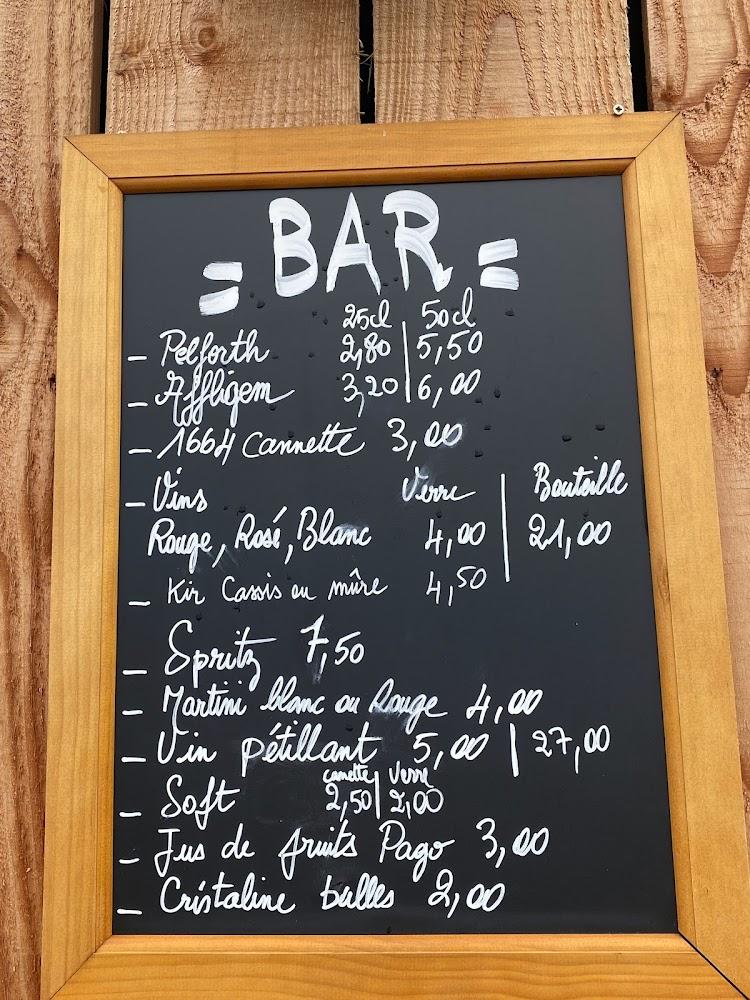 = BAR =
25cl | 50cl
- Pelforth 2,80 | 5,50
- Affligem 3,20 | 6,00
- 1664 cannette 3,00
- Vins Verre | Bouteille
Rouge, Rosé, Blanc 4,00 | 21,00
- Kir Cassis ou mûre 4,50
- Spritz 7,50
- Martini blanc ou Rouge 4,00
- Vin pétillant 5,00 | 27,00
canette | Verre
- Soft 2,50 | 2,00
- Jus de fruits Pago 3,00
- Cristaline bulles 2,00